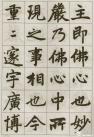 主即佛心也妙
嚴乃佛心中所
現之事也今
重二邃宇廣博